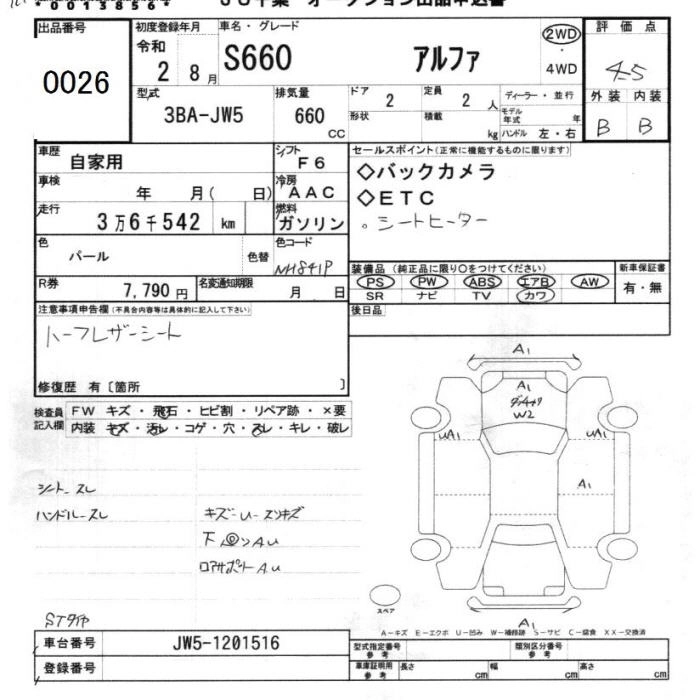 *00138564*
出品番号
0026
初度登録年月
令和
2 8月
車名・グレード
S660 アルファ
2WD
・
4WD
評価点
4-5
外装 内装
B B
型式
3BA-JW5
排気量
660
CC
ドア
2
定員
2 人
形状
積載
kg
ディーラー・並行
モデル年式 年
ハンドル 左・右
車歴
自家用
シフト
F6
車検
年 月( 日)
冷房
AAC
走行
3万6千542 km
燃料
ガソリン
色
パール
色替
色コード
NH841P
R券
7,790円
名変通知期限
月 日
セールスポイント(正常に機能するものに限ります)
◇バックカメラ
◇ETC
。シートヒーター
装備品(純正品に限り○をつけてください)
PS PW ABS エアB AW
SR ナビ TV カワ
新車保証書
有・無
後日品
注意事項申告欄(不具合内容等は具体的に記入して下さい)
ハーフレザーシート
修復歴 有〔箇所 〕
検査員
記入欄
FW キズ・飛石・ヒビ割・リペア跡・×要
内装 キズ・汚レ・コゲ・穴・スレ・キレ・破レ
シート スレ
ハンドルスレ
キズ-U-スリキズ
AU
ロアサポートAU
A1
A1
W2
UA1
UA1
A1
A1
スペア
A-キズ E-エクボ U-凹み W-補修跡 S-サビ C-腐食 XX-交換済
車台番号
JW5-1201516
登録番号
型式指定番号
参考
類別区分番号
参考
車庫証明用
参考
長さ cm
幅 cm
高さ cm